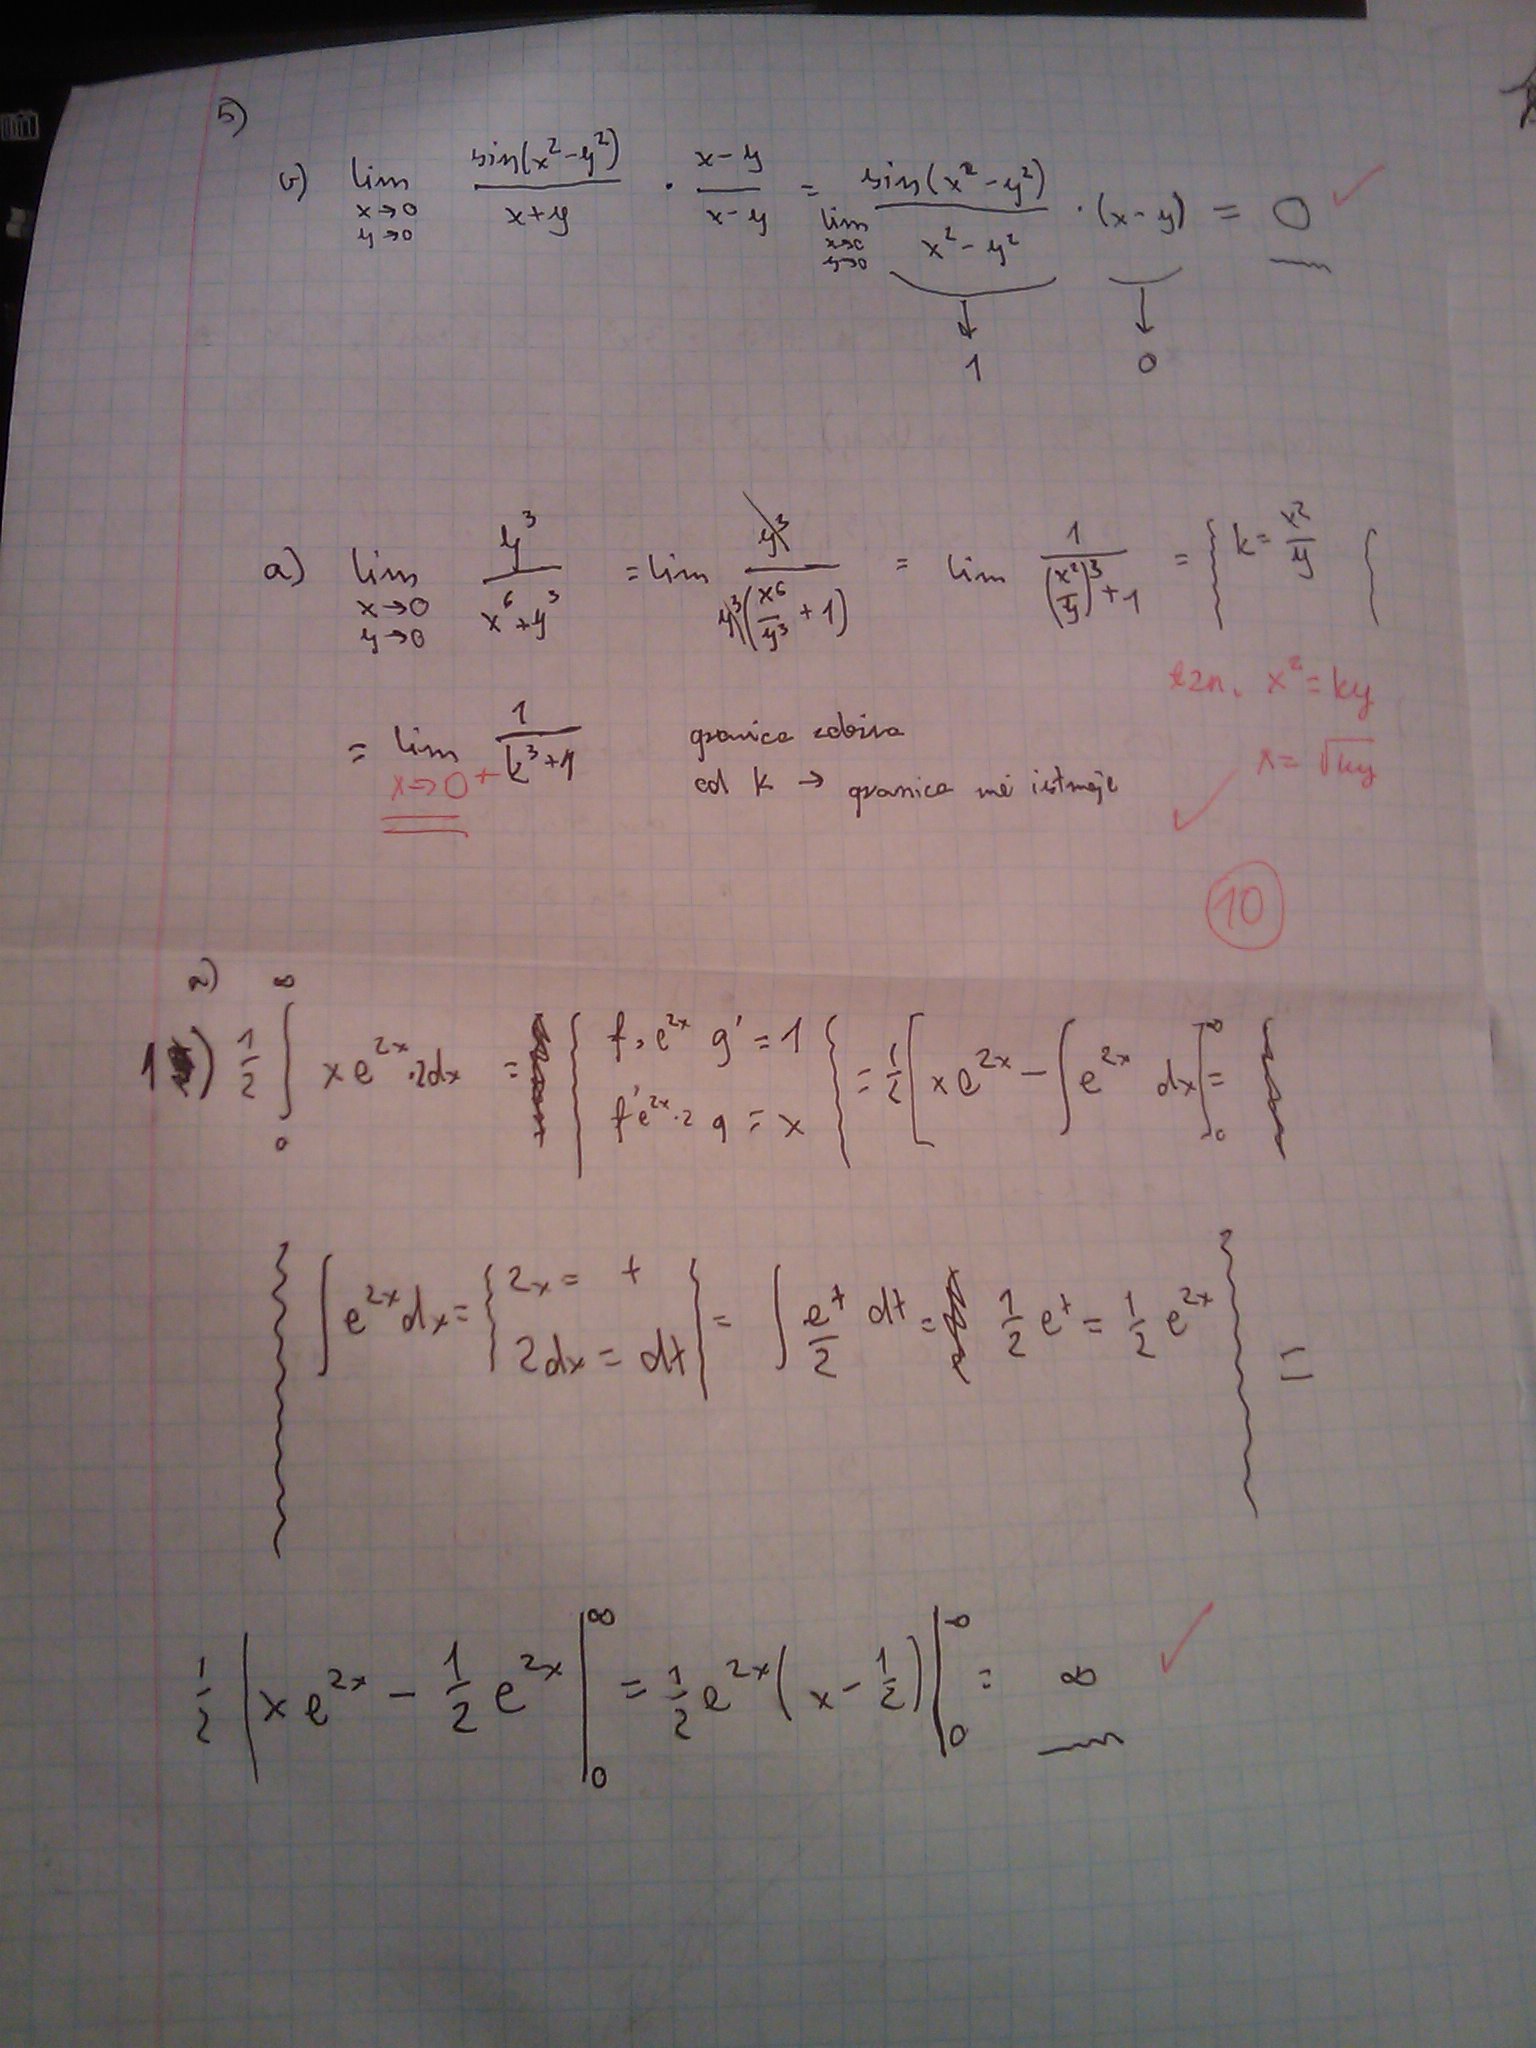 5)
b) lim x→0 y→0 sin(x²-y²)/(x+y) · (x-y)/(x-y) = lim x→0 y→0 sin(x²-y²)/(x²-y²) · (x-y) = 0 ✓
↓ ↓
1 0
a) lim x→0 y→0 y³/(x⁶+y³) = lim y³/(y³(x⁶/y³ + 1)) = lim 1/((x²/y)³+1) = { k = x²/y {
tzn. x² = ky
= lim x→0+ 1/(k³+1) granica zależy x = √ky
od k → granica nie istnieje ✓
10
a)
1) 1/2 ∫₀^∞ x e^{2x} · 2dx = { f = e^{2x} g' = 1 } = 1/2 [ x e^{2x} - ∫ e^{2x} dx ]₀^∞ =
f' e^{2x}·2 g = x
{ ∫ e^{2x} dx = { 2x = t } = ∫ e^t/2 dt = 1/2 e^t = 1/2 e^{2x} } =
2dx = dt
1/2 | x e^{2x} - 1/2 e^{2x} |₀^∞ = 1/2 e^{2x} (x - 1/2) |₀^∞ = ∞ ✓